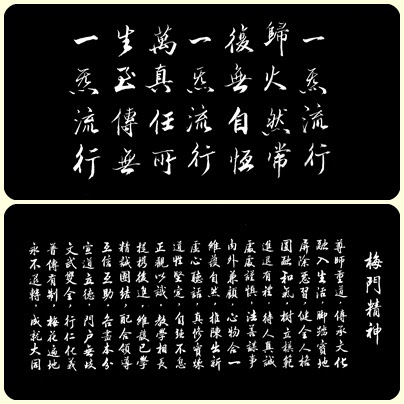 一炁流行
歸火然常
復無自恆
一炁流行
萬真任所
生至傳無
一炁流行
梅門精神
尊師重道，傳承文化
融入生活，腳踏實地
屏除惡習，健全人格
圓融和氣，樹立模範
進退有禮，待人真誠
處處謹慎，法喜謀事
內外兼顧，心物合一
維護自然，推陳出新
虛心聽話，真修實煉
道性堅定，自強不息
正觀以誠，教學相長
提攜後進，維護已學
精誠團結，配合領導
互信互助，各盡本分
宣道立德，門戶無歧
文武雙全，行仁化義
普傳有制，梅花遍地
永不退轉，成就大同